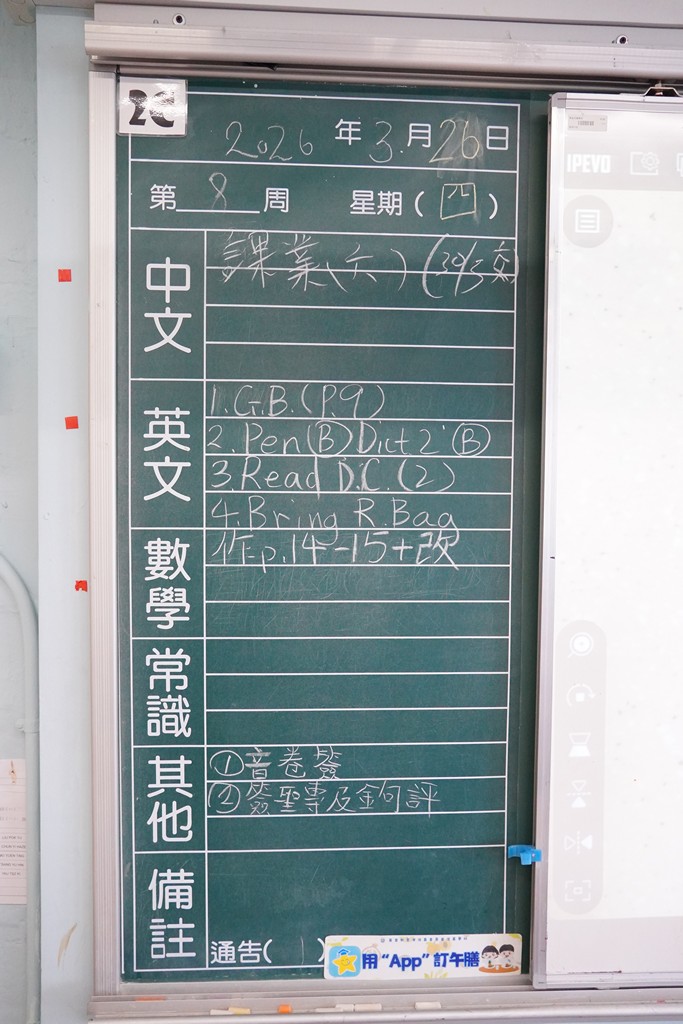 2C
2026 年 3 月 26 日
第 8 周 星期 ( 四 )
中文
課業(六) (30/3交)
英文
1.G.B.(P.9)
2.Pen(B)Dict 2 (B)
3.Read D.C.(2)
4.Bring R.Bag
數學
作p.14-15+改
常識
其他
①音卷簽
②簽聖專及金句評
備註
通告( 1 )
用“App”訂午膳
IPEVO